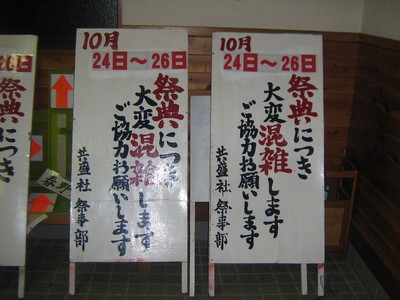 10月
24日～26日
祭典につき
大変混雑します
ご協力お願いします
共盛社 祭事部
10月
24日～26日
祭典につき
大変混雑します
ご協力お願いします
共盛社 祭事部
26日
につき